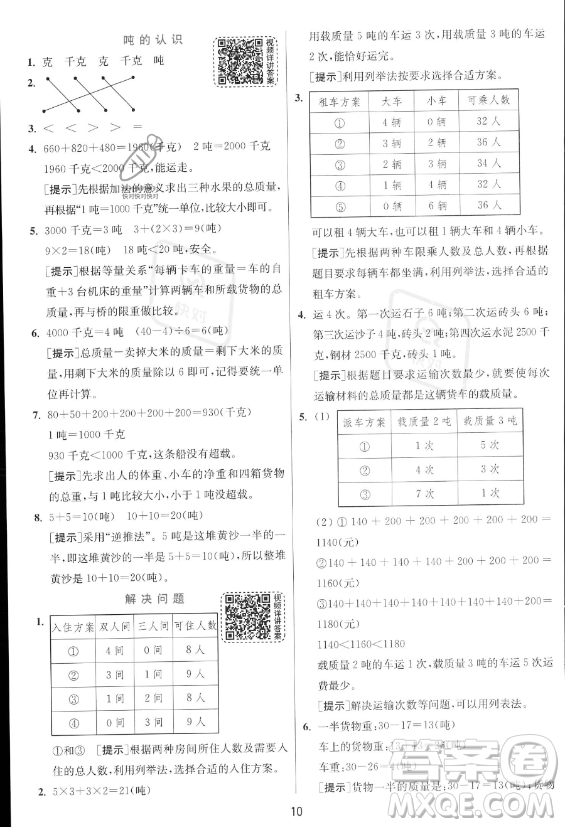 吨的认识
视频详讲答案
1. 克 千克 克 千克 吨
2.
3. < < > > =
4. 660+820+480=1960(千克) 2吨=2000千克
1960千克<2000千克,能运走。
[提示]先根据加法的意义求出三种水果的总质量,
再根据“1吨=1000千克”统一单位比较大小。
5. 3000千克=3吨 3+(2×3)=9(吨)
9×2=18(吨) 18吨<20吨,安全。
[提示]根据等量关系“每辆卡车的重量=车的自
重+3台机床的重量”计算两辆车和所载货物的总
质量,再与桥的限重比较即可。
6. 4000千克=4吨 (40-4)÷6=6(吨)
[提示]总质量-卖掉大米的质量=剩下大米的质
量,用剩下大米的质量除以6即可,注意要统一单
位再计算。
7. 80+50+200+200+200+200=930(千克)
1吨=1000千克
930千克<1000千克,这条船没有超载。
[提示]先求出人的体重、小车的净重和四箱货物
的总重,与1吨比较大小,小于1吨没有超载。
8. 5+5=10(吨) 10+10=20(吨)
[提示]采用“逆推法”。5吨是这堆黄沙一半的一
半,即这堆黄沙的一半是5+5=10(吨),所以整堆
黄沙是10+10=20(吨)。
解决问题
视频详讲答案
1.
入住方案 双人间 三人间 可住人数
① 4间 0间 8人
② 3间 1间 9人
③ 1间 2间 8人
④ 0间 3间 9人
①和③ [提示]根据两种房间所住人数及需要入
住的总人数,利用列举法,选择合适的入住方案。
2. 5×3+3×2=21(吨)
用载质量5吨的车运3次,用载质量3吨的车运
2次,能恰好运完。
[提示]利用列举法按要求选择合适方案。
3.
租车方案 大车 小车 可乘人数
① 4辆 0辆 32人
可以租4辆大车,也可以租1辆大车和4辆小车。
[提示]根据两种车限乘人数及总人数,再根据
题目要求每辆车都坐满,利用列举法,选择合适的
租车方案。
4. 运4次。第一次运石子6吨;第二次运砖头6吨;
第三次运沙子4吨,砖头2吨;第四次运水泥2500千
克,钢材2500千克,砖头1吨。
[提示]根据题目要求运输次数最少,就要使每次
运输材料的总质量都是这辆货车的载质量。
5. (1)
派车方案 载质量2吨 载质量3吨
① 1次 5次
② 4次 3次
③ 7次 1次
(2) ①140+200+200+200+200+200=
1140(元)
②140+140+140+140+200+200+200=
1160(元)
③140+140+140+140+140+140+140+200=
1180(元)
1140<1160<1180
载质量2吨的车运1次,载质量3吨的车运5次
运费最少。
[提示]解决运输次数等问题,可以用列表法。
6. 一半货物重:30-17=13(吨)
车上的货物重:13+13=26(吨)
车重:30-26=4(吨)
[提示]货物一半的质量是30-17=13(吨);货物
10
答案卷
MXQE.COM